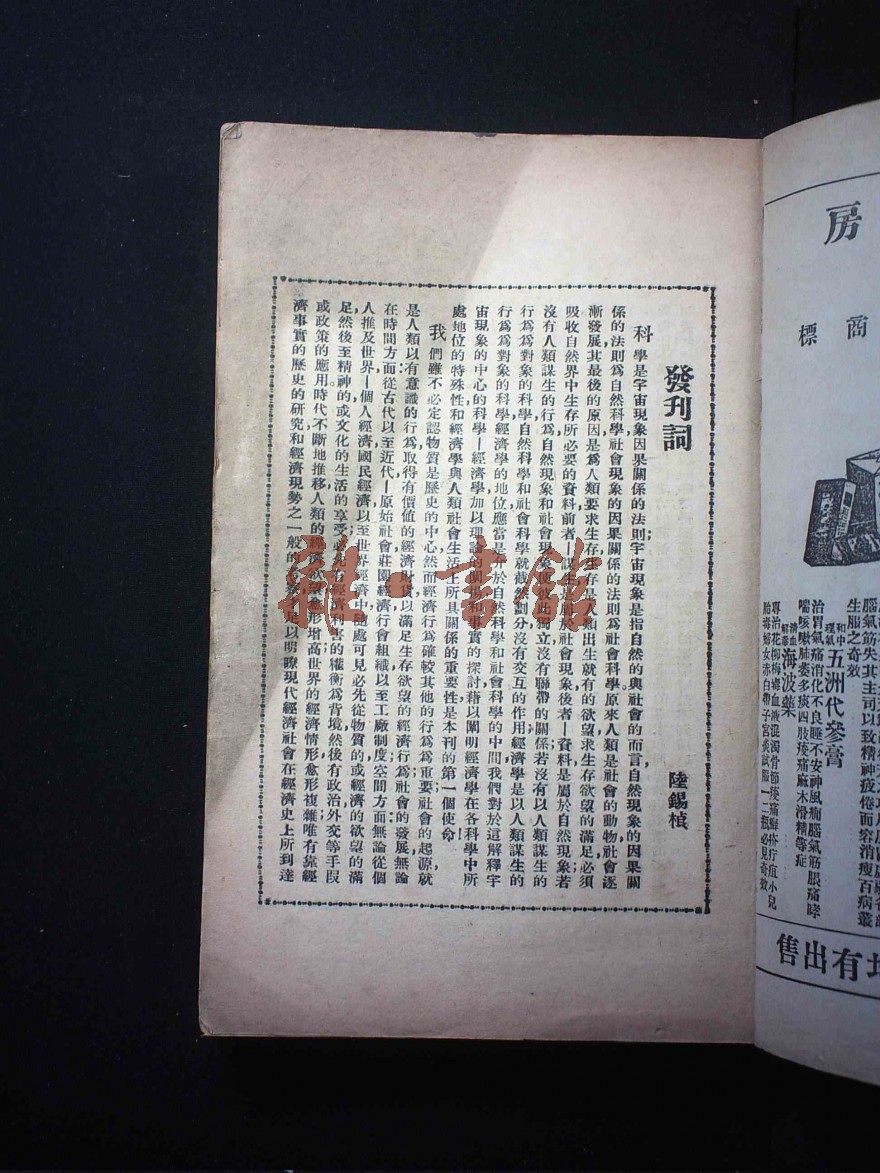 發刊詞
陸錫楨
科學是宇宙現象因果關係的法則宇宙現象是指自然的與社會的而言,自然現象的因果關
係的法則爲自然科學社會現象的因果關係的法則爲社會科學原來人類是社會的動物社會逐
漸發展其最後的原因是爲人類要求生存,生存是人類出生就有的欲望求生存欲望的滿足,必須
吸收自然界中生存所必要的資料前者—謀生是屬於社會現象後者—資料是屬於自然現象若
沒有人類謀生的行爲,自然現象和社會現象便彼此獨立沒有聯帶的關係若沒有以人類謀生的
行爲爲對象的科學,自然科學和社會科學就截然劃分沒有交互的作用經濟學是以人類謀生的
行爲爲對象的科學經濟學的地位應當是介於自然科學和社會科學的中間我們對於這解釋宇
宙現象的中心的科學—經濟學加以理論的闡揚和事實的探討藉以闡明經濟學在各科學中所
處地位的特殊性和經濟學與人類社會生活上所具關係的重要性,是本刊的第一個使命!
我們雖不必定認物質是歷史的中心然而經濟行爲確較其他的行爲爲重要社會的起源就
是人類以有意識的行爲,取得有價值的經濟財貨以滿足生存欲望的經濟行爲;社會的發展無論
在時間方面從古代以至近代—原始社會莊園經濟行會組織以至工廠制度空間方面無論從個
人推及世界—個人經濟國民經濟以至世界經濟中,隨處可見必先從物質的或經濟的欲望的滿
足然後至精神的或文化的生活的享受必先有經濟利害的權衡爲背境然後有政治,外交等手段
或政策的應用時代不斷地推移人類的經濟欲望愈形增高世界的經濟情形愈形複雜唯有靠經
濟事實的歷史的研究和經濟現勢之一般的考察才足以明瞭現代經濟社會在經濟史上所到達
房
商標
生腦之奇效
和中理氣五洲代參膏
治胃氣痛消化不良睡不安神風癇腦氣筋脹痛哮
喘咳嗽肺萎多痰四肢痠痛麻木滑精等症
清血解毒海波藥
腦氣筋失其主司以致精神疲倦而容消瘦百病叢
有出售
雜·書館